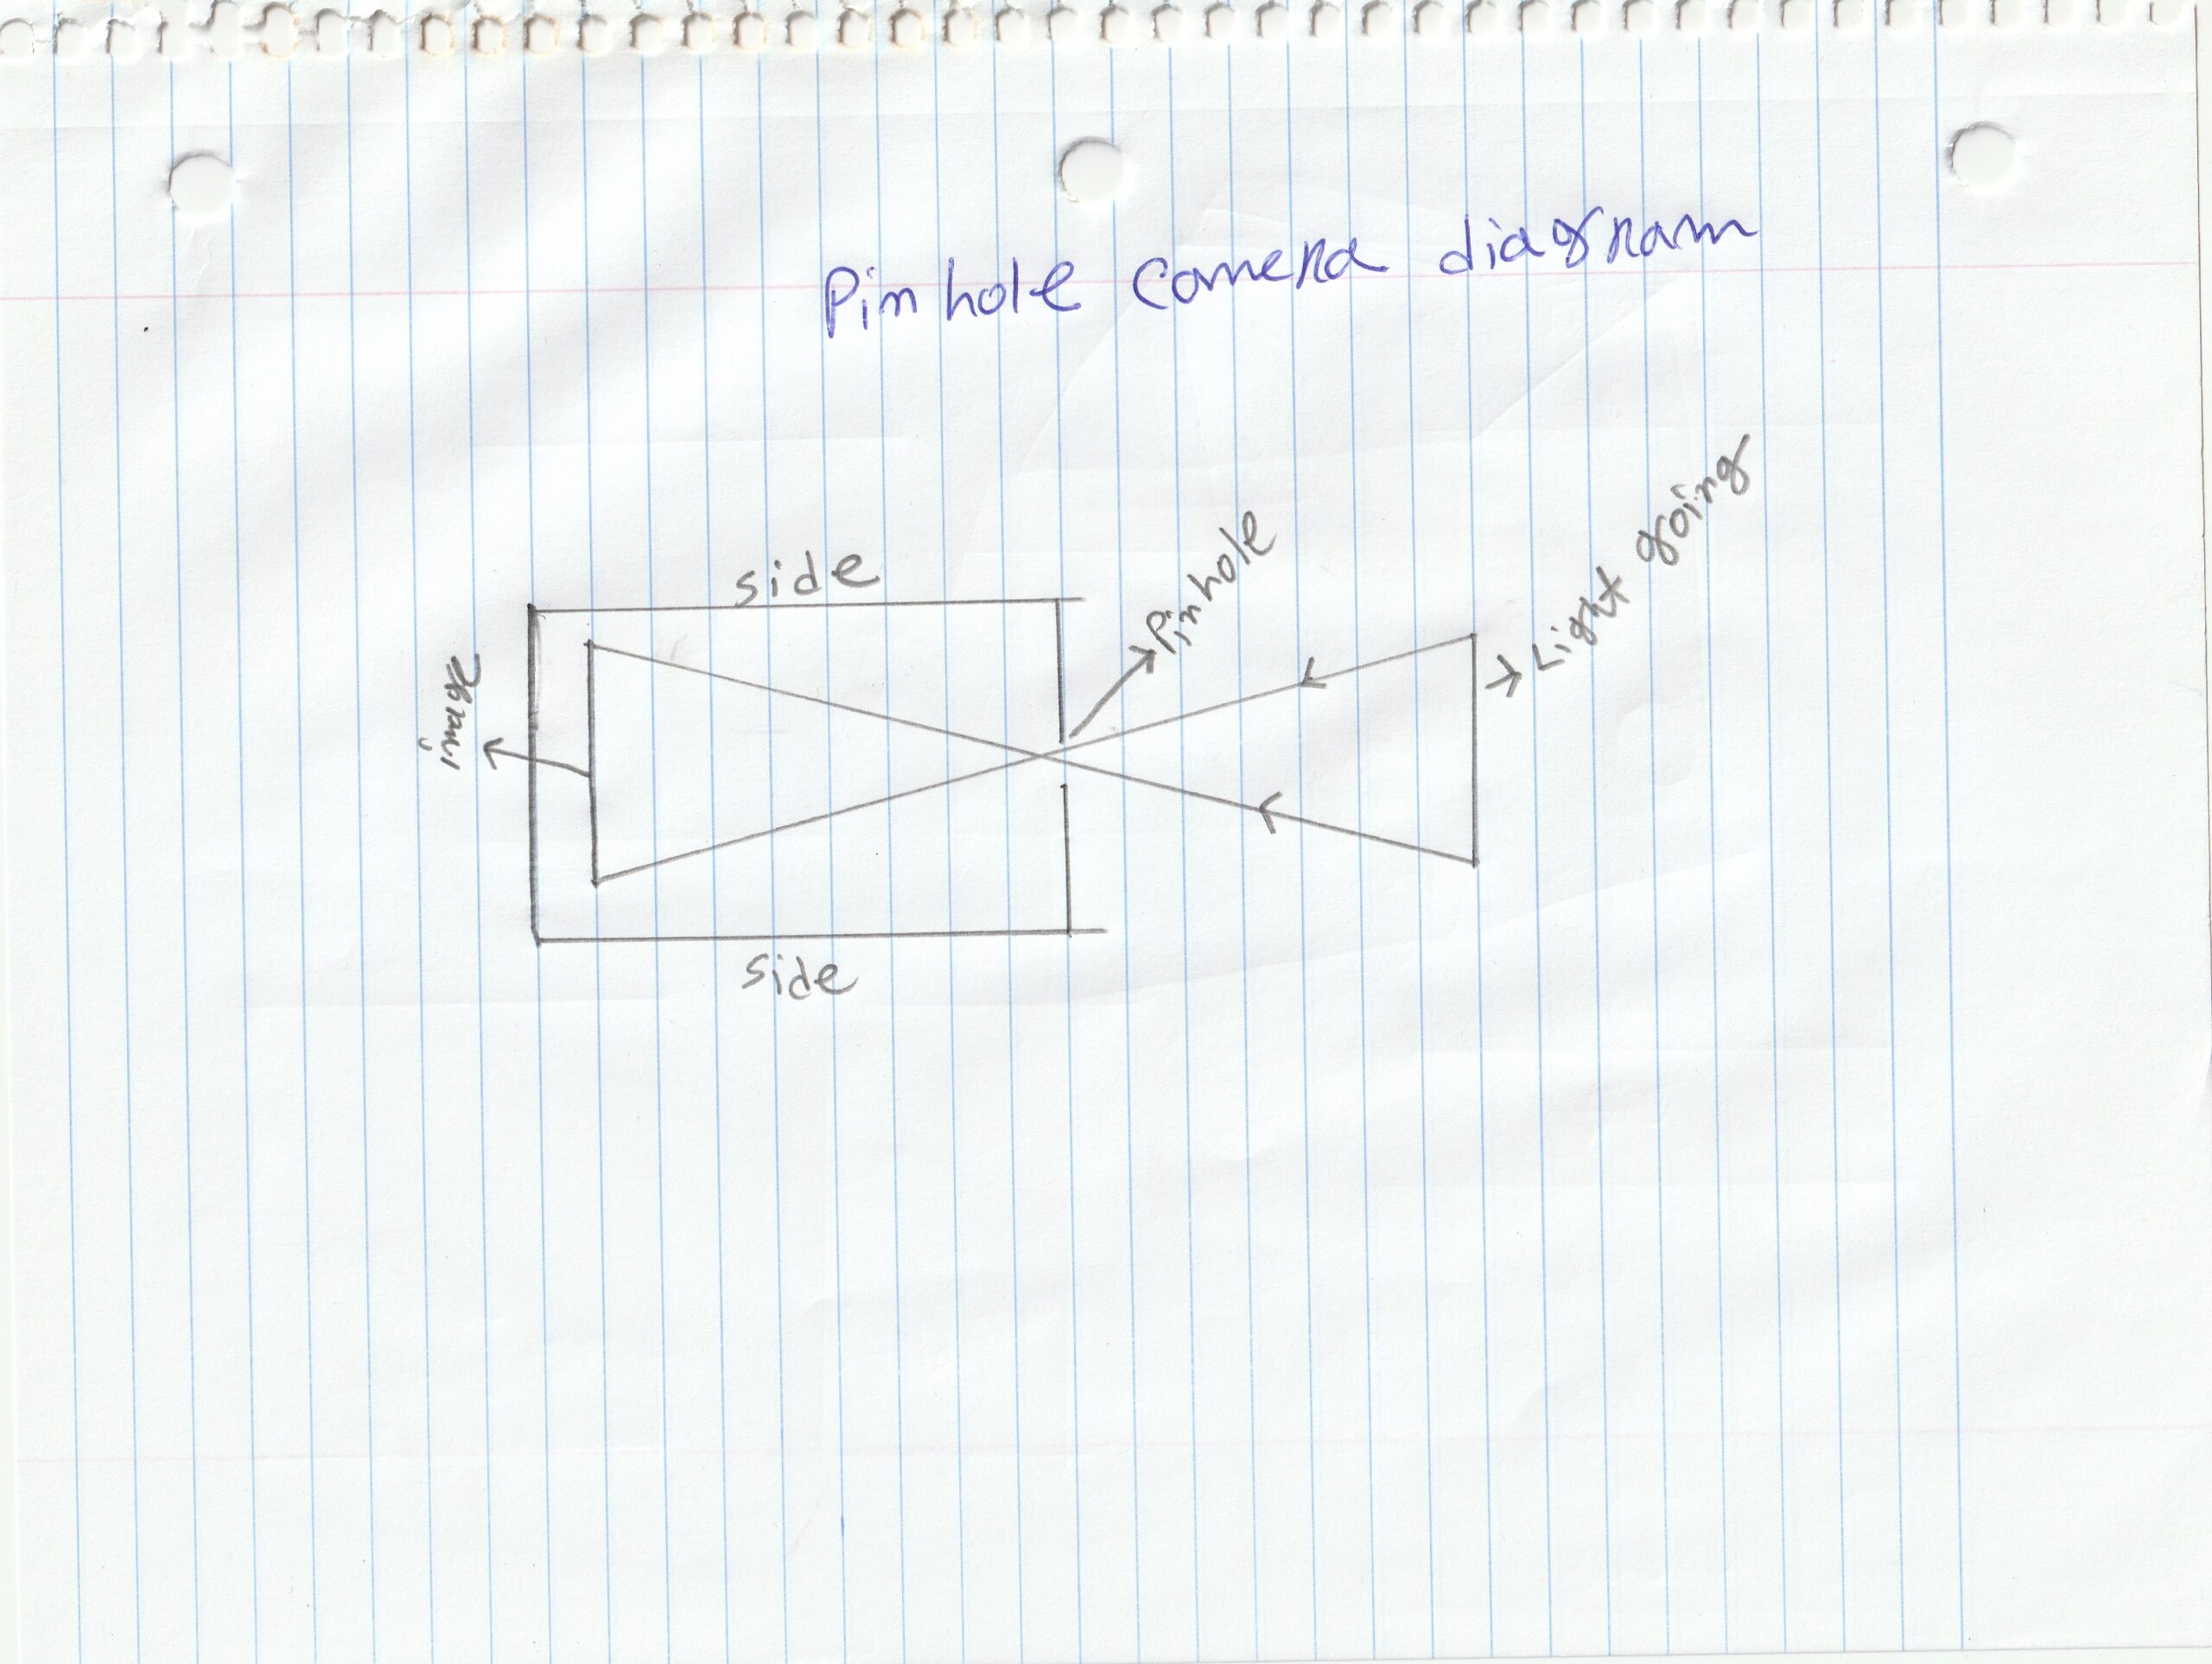 Pinhole camera diagram
side
Pinhole
Light going
image
side